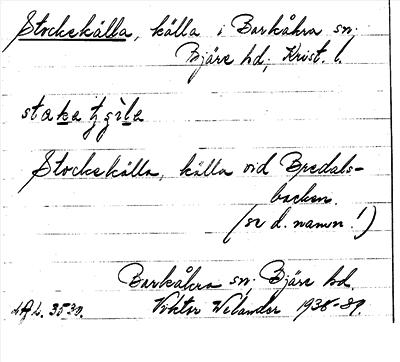 Stockekälla, källa i Barkåkra sn;
Bjäre hd; Krist. l.
Stockekälla, källa vid Bredals-
backen.
(se d. namn!)
Barkåkra sn; Bjäre hd.
Viktor Welander 1938-39.